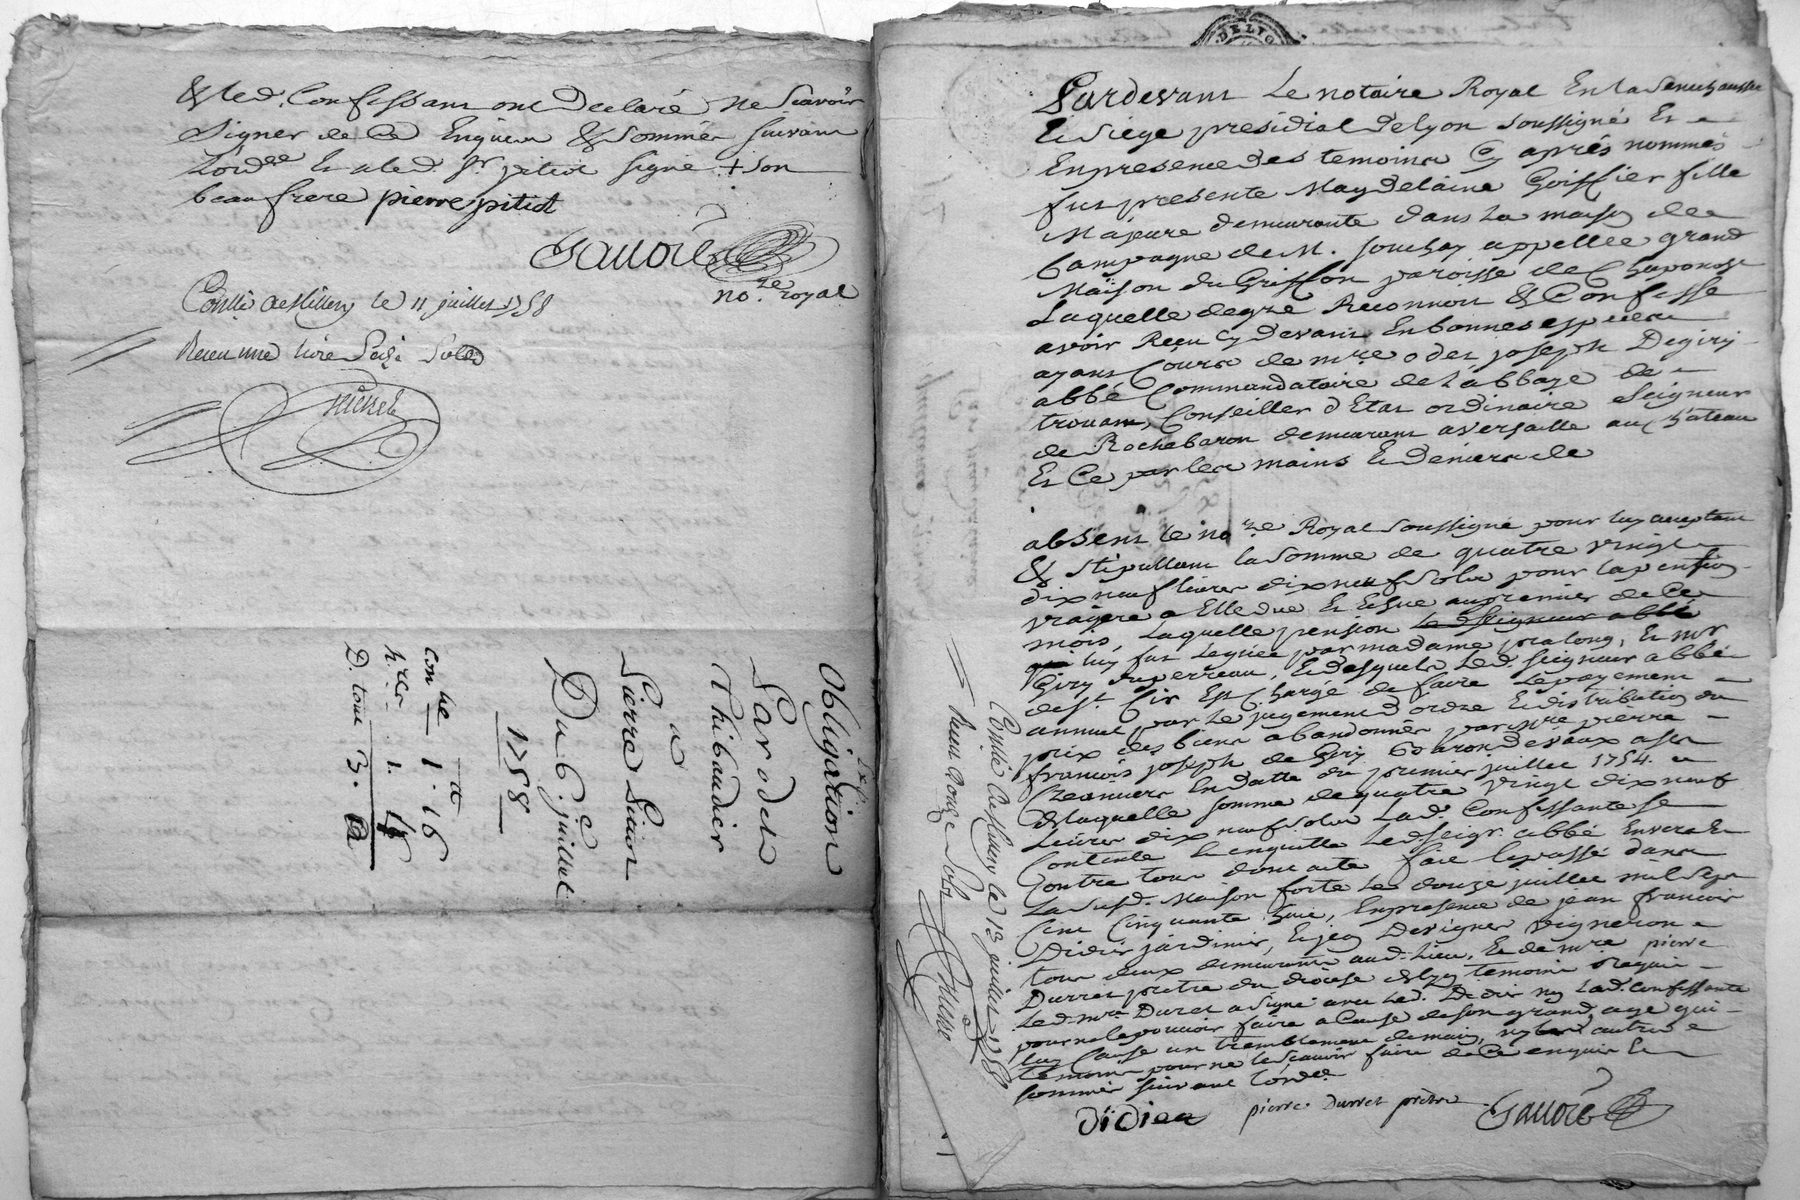 & led. Confessant ont Declaré ne Scavoir
signer de ce Enquis & sommés suivant
Lord.ce Et aled. Sr. pitiot signé + son
beau frere pierre pitiot
Gavoie
no.re royal
Conllé a Millery le 11 juillet 1758
Receu une livre Seize Sols
Obligation
Lardet
Thibaudier
a
Pierre
Du 6e juillet
1758
con lle 1. 16
1. 4
D. tout 3.
DELYO
Pardevant Le notaire Royal En la Senechaussée
& Siège presidial De lyon soussigné Et
En presence des temoins Cy après nommés
fut presente Magdelaine Goiffier fille
Majeure demeurante dans La maison de
Campagne de M. Souchay appellée grand
Maison du Griffon paroisse de Chaponost
Laquelle de gré Reconnoit & Confesse
avoir Reçu Cy devant En bonnes especes
ayant Cours de mre. odet joseph De giry
abbé Commandataire de L'abbaye de
trouam, Conseiller d'Etat ordinaire Seigneur
de Rochebaron demeurant a versaille au Chateau
Et Ce par les mains & deniers de
absent le no.re Royal soussigné pour luy acceptant
& stipullant la somme de quatre vingt
dix neuf livres dix neuf sols pour la pension
viagere a Elle due Et Echue au premier de Ce
mois, Laquelle pension led. Seigneur abbé
luy fut leguée par madame pralong, Et mr
Giry duperreau, & desquels Led. Seigneur abbé
de St. Cir Est Chargé de faire Le payement
annuel par Le jugement d'ordre Et distribution du
prix des biens abandonnés par mre pierre
françois joseph de Giry baron devaux a ses
Creanciers En datte du premier juillet 1754.
De laquelle somme de quatre vingt dix neuf
Livres dix neuf sols Lad. Confessante se
Contente & en quitte Led. Seigr. abbé Envers Et
Contre tous dont acte fait & passé dans
La susd. Maison forte Le douze juillet mil sept
Cent Cinquante huit, En presence de jean francois
Didier jardinier, & jean Devigner vigneron
tous deux demeurants aud. Lieu, & de mre pierre
Durret pretre du diocese de lyon temoins Requis
Led. mre. Durret a Signé avec Led. Didier ny Lad. Confessante
pour ne le pouvoir faire a Cause de son grand age qui
luy Cause un tremblement de main, ny l'autre
temoin pour ne le scavoir faire de Ce enquis &
sommés suivant lord.ce
Didier pierre Durret pretre Gavoie
Conllé a Millery le 13 juillet 1758
Receu douze Sols